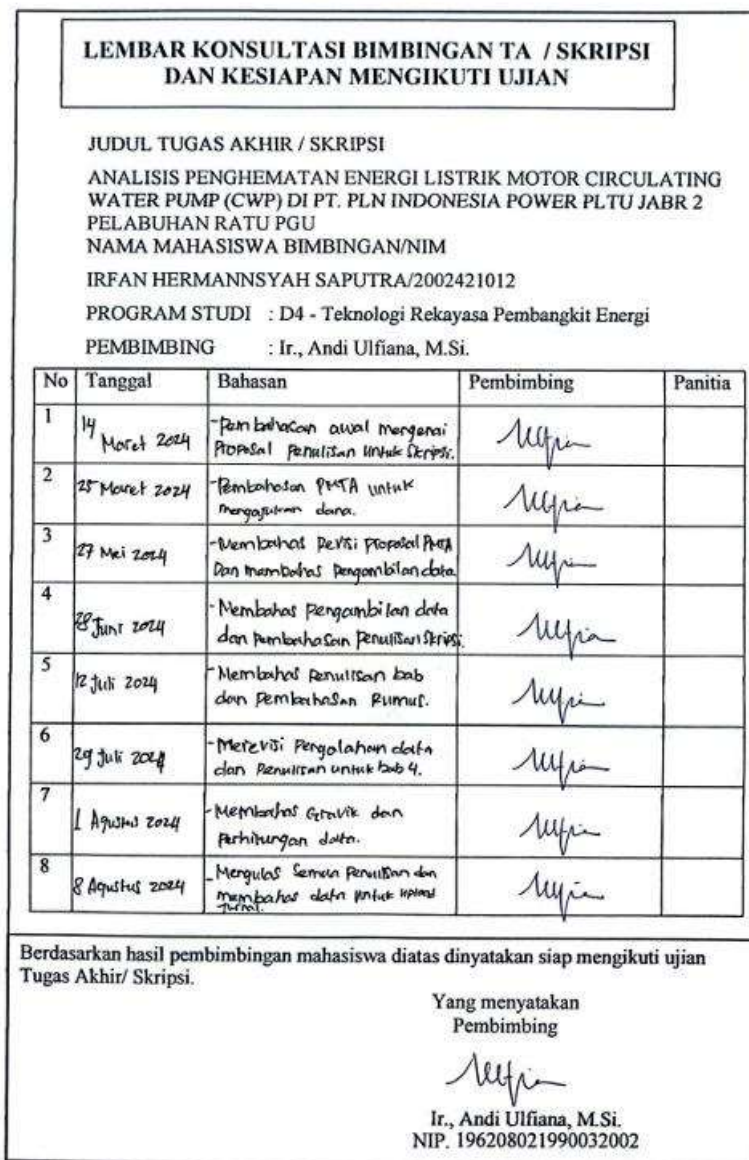 LEMBAR KONSULTASI BIMBINGAN TA / SKRIPSI
DAN KESIAPAN MENGIKUTI UJIAN
JUDUL TUGAS AKHIR / SKRIPSI
ANALISIS PENGHEMATAN ENERGI LISTRIK MOTOR CIRCULATING
WATER PUMP (CWP) DI PT. PLN INDONESIA POWER PLTU JABR 2
PELABUHAN RATU PGU
NAMA MAHASISWA BIMBINGAN/NIM
IRFAN HERMANNSYAH SAPUTRA/2002421012
PROGRAM STUDI : D4 - Teknologi Rekayasa Pembangkit Energi
PEMBIMBING : Ir., Andi Ulfiana, M.Si.
No Tanggal Bahasan Pembimbing Panitia
1 14 Maret 2024 -Pembahasan awal mengenai
Proposal Penulisan untuk Skripsi.
2 25 Maret 2024 -Pembahasan PMTA untuk
mengajukan dana.
3 27 Mei 2024 -Membahas Revisi Proposal PMTA
Dan membahas Pengambilan data.
4 28 Juni 2024 -Membahas Pengambilan data
dan pembahasan Penulisan Skripsi.
5 12 Juli 2024 -Membahas Penulisan bab
dan Pembahasan Rumus.
6 29 Juli 2024 -Merevisi Pengolahan data
dan Penulisan untuk bab 4.
7 1 Agustus 2024 -Membahas Gravik dan
Perhitungan data.
8 8 Agustus 2024 -Mengulas Semua Penulisan dan
membahas data untuk upload
Jurnal.
Berdasarkan hasil pembimbingan mahasiswa diatas dinyatakan siap mengikuti ujian
Tugas Akhir/ Skripsi.
Yang menyatakan
Pembimbing
Ir., Andi Ulfiana, M.Si.
NIP. 196208021990032002